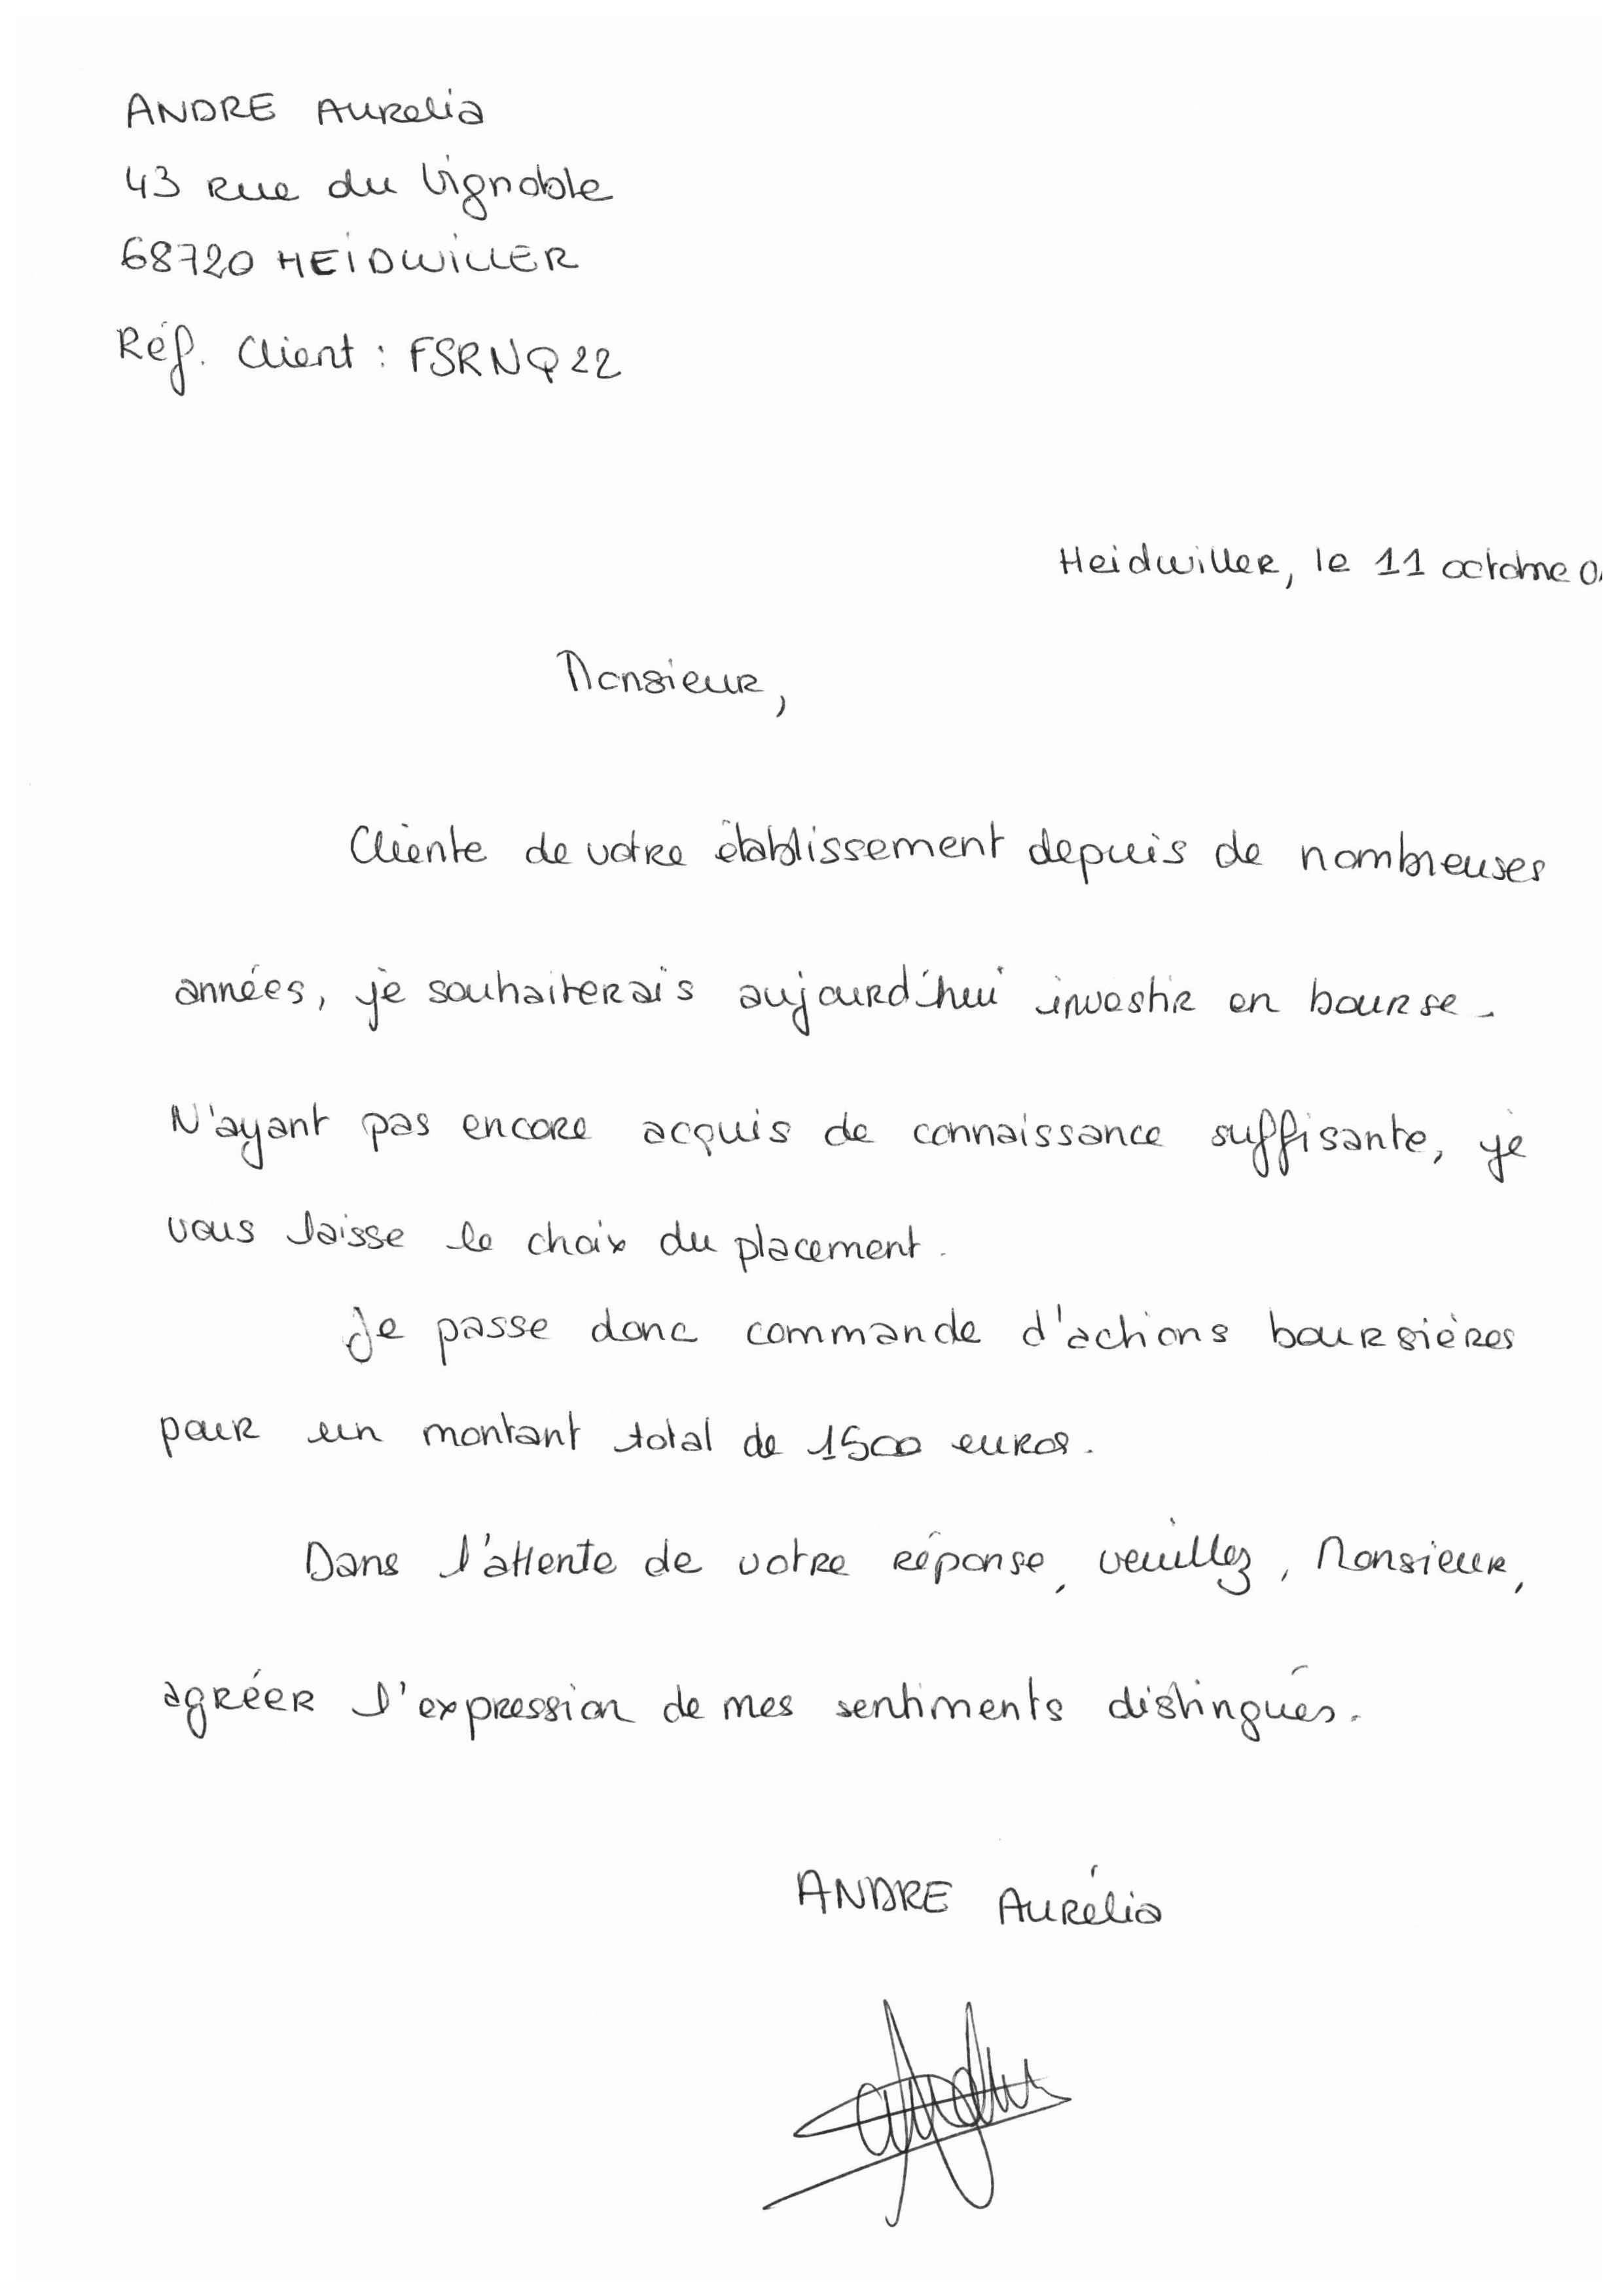 ANDRE Aurelia
43 rue du Vignoble
68720 HEIDWILLER
Réf. Client : FSRNQ22
Heidwiller, le 11 octobre
Monsieur,
Cliente de votre établissement depuis de nombreuses
années, je souhaiterais aujourd'hui investir en bourse.
N'ayant pas encore acquis de connaissance suffisante, je
vous laisse le choix du placement.
Je passe donc commande d'actions boursières
pour un montant total de 1500 euros.
Dans l'attente de votre réponse, veuillez, Monsieur,
agréer l'expression de mes sentiments distingués.
ANDRE Aurélia